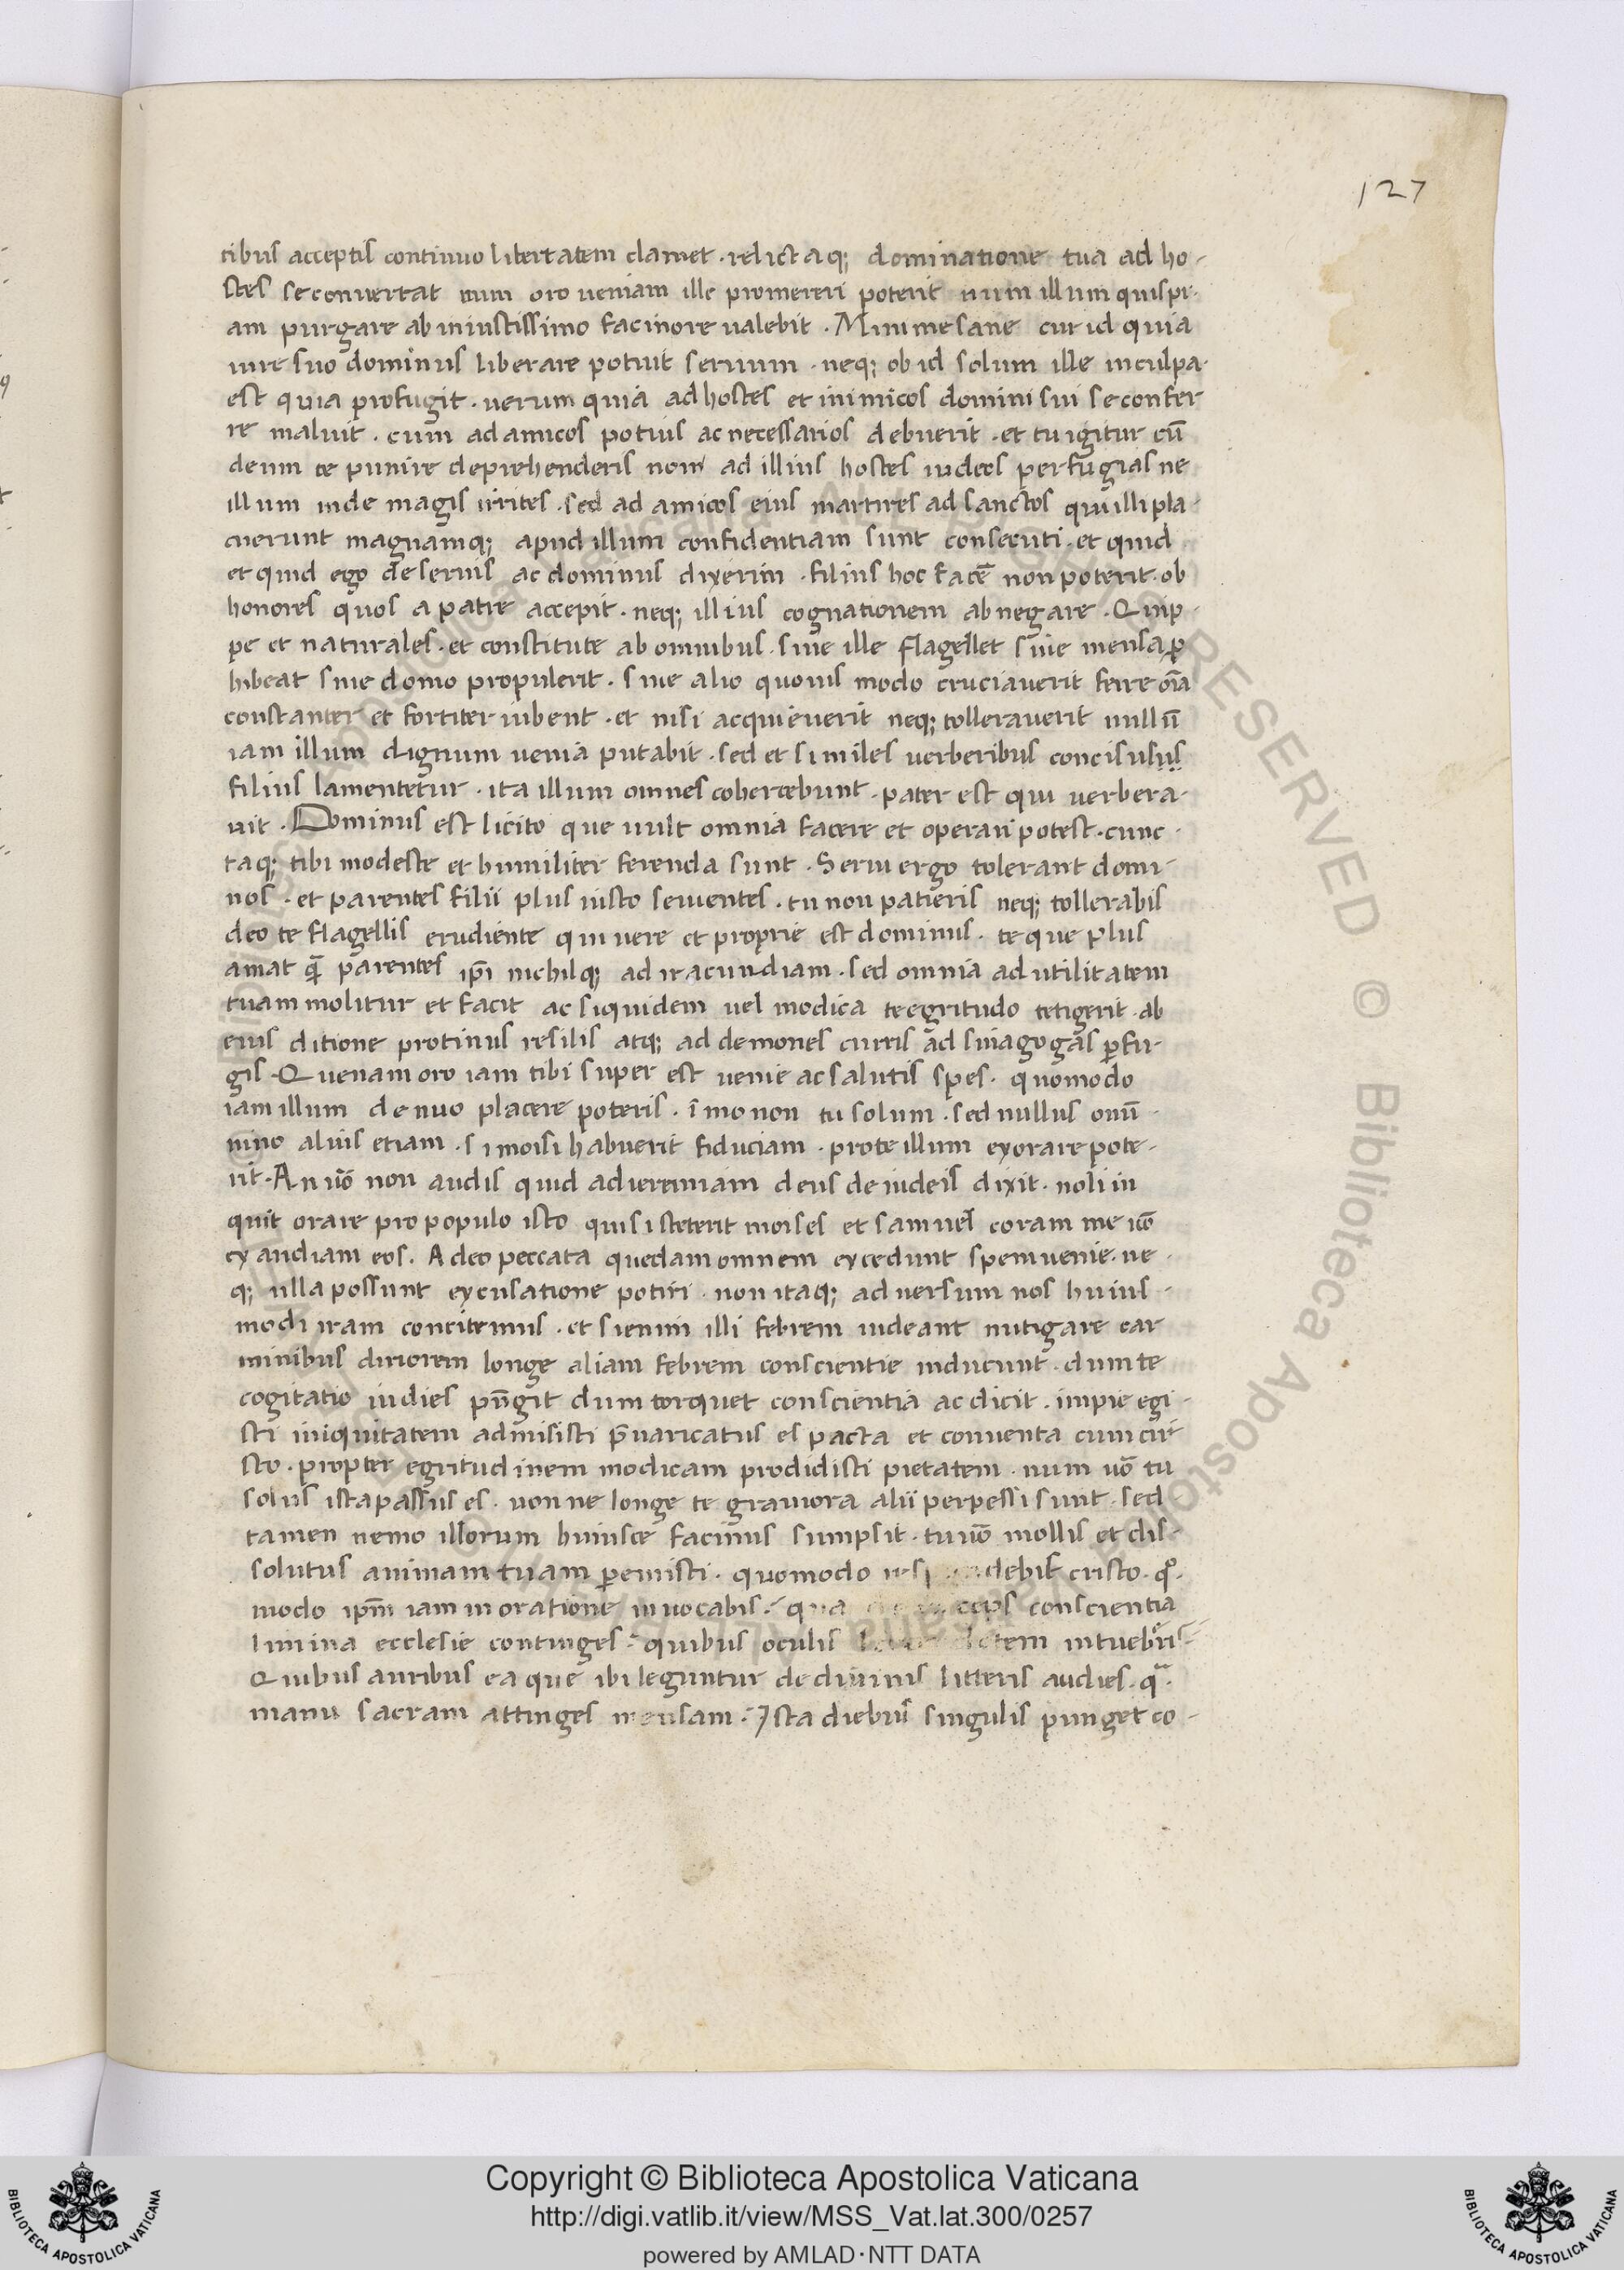 127
tibus acceptis continuo libertatem clamet · relictaq; dominatione tua ad ho-
stes se convertat num oro ueniam ille promereri poterit num illum quispi-
am purgare ab iniustissimo facinore ualebit · Minime sane cur id quia
iure suo dominus liberare potuit seruum · neq; ob id solum ille inculpa-
est quia profugit · uerum quia ad hostes et inimicos domini sui se confer
re maluit · cum ad amicos potius ac necessarios debuerit · et tu igitur cū
deum te punire deprehenderis non ad illius hostes iudeos perfugias ne
illum inde magis irrites · sed ad amicos eius martires ad sanctos qui illi pla-
cuerunt magnamq; apud illum confidentiam sunt consecuti · et quid
et quid ego de seruis ac dominus dixerim · filius hoc facē non poterit · ob
honores quos a patre accepit · neq; illius cognationem abnegare · Quip-
pe et naturales · et constitute ab omnibus · siue ille flagellet siue mensa ꝓ
hibeat siue domo propulerit · siue alio quouis modo cruciauerit ferre oīa
constanter et fortiter iubent · et nisi acquieuerit neq; tollerauerit nullū
iam illum dignum uenia putabit · sed et similes uerberibus concisusus
filius lamentetur · ita illum omnes cohercebunt · pater est qui uerbera-
uit · Dominus est licito que uult omnia facere et operari potest · cunc-
taq; tibi modeste et humiliter ferenda sunt · Serui ergo tolerant domi-
nos · et parentes filii plus iusto seuientes · tu non patieris neq; tollerabis
deo te flagellis erudiente qui uere et proprie est dominus · te que plus
amat q̄ parentes ip̄i nichilq; ad iracundiam · sed omnia ad utilitatem
tuam molitur et facit ac siquidem uel modica te egritudo tetigerit · ab
eius ditione protinus resilis atq; ad demones curris ad sinagogas ꝑfu-
gis · Quenam oro iam tibi super est uenie ac salutis spes · quomodo
iam illum denuo placere poteris · īmo non tu solum · sed nullus omū-
nino alius etiam · si moisi habuerit fiduciam · pro te illum exorare pote-
rit · An uō non audis quid ad ieremiam deus de iudeis dixit · noli in
quit orare pro populo isto quis si steterit moises et samuel coram me nō
exaudiam eos · Adeo peccata quedam omnem excedunt spem uenie · ne-
q; ulla possunt excusatione potiri · non itaq; aduersum nos huius-
modi iram concitemus · et si enim illi febrem uideant mitigare car
minibus diriorem longe aliam febrem conscientie inducunt · dum te
cogitatio indies pn̄git dum torquet conscientia ac dicit · impie egi-
sti iniquitatem admisisti p̄uaricatus es pacta et conuenta cum cri
sto · propter egritudinem modicam prodidisti pietatem · num uō tu
solus ista passus es · nonne longe te grauiora alii perpessi sunt · sed
tamen nemo illorum huiusce facinus sumpsit · tu uō mollis et dis-
solutus animam tuam ꝑemisti · quomodo debit cristo · qͦ·
modo ip̄m iam in oratione inuocabis · conscientia
limina ecclesie continges · quibus oculis intueberis
Quibus auribus ea que ibi leguntur de diuinis litteris audies · qᵃ·
manu sacram attinges mensam · Ista diebus singulis punget co-
Copyright © Biblioteca Apostolica Vaticana
http://digi.vatlib.it/view/MSS_Vat.lat.300/0257
powered by AMLAD·NTT DATA